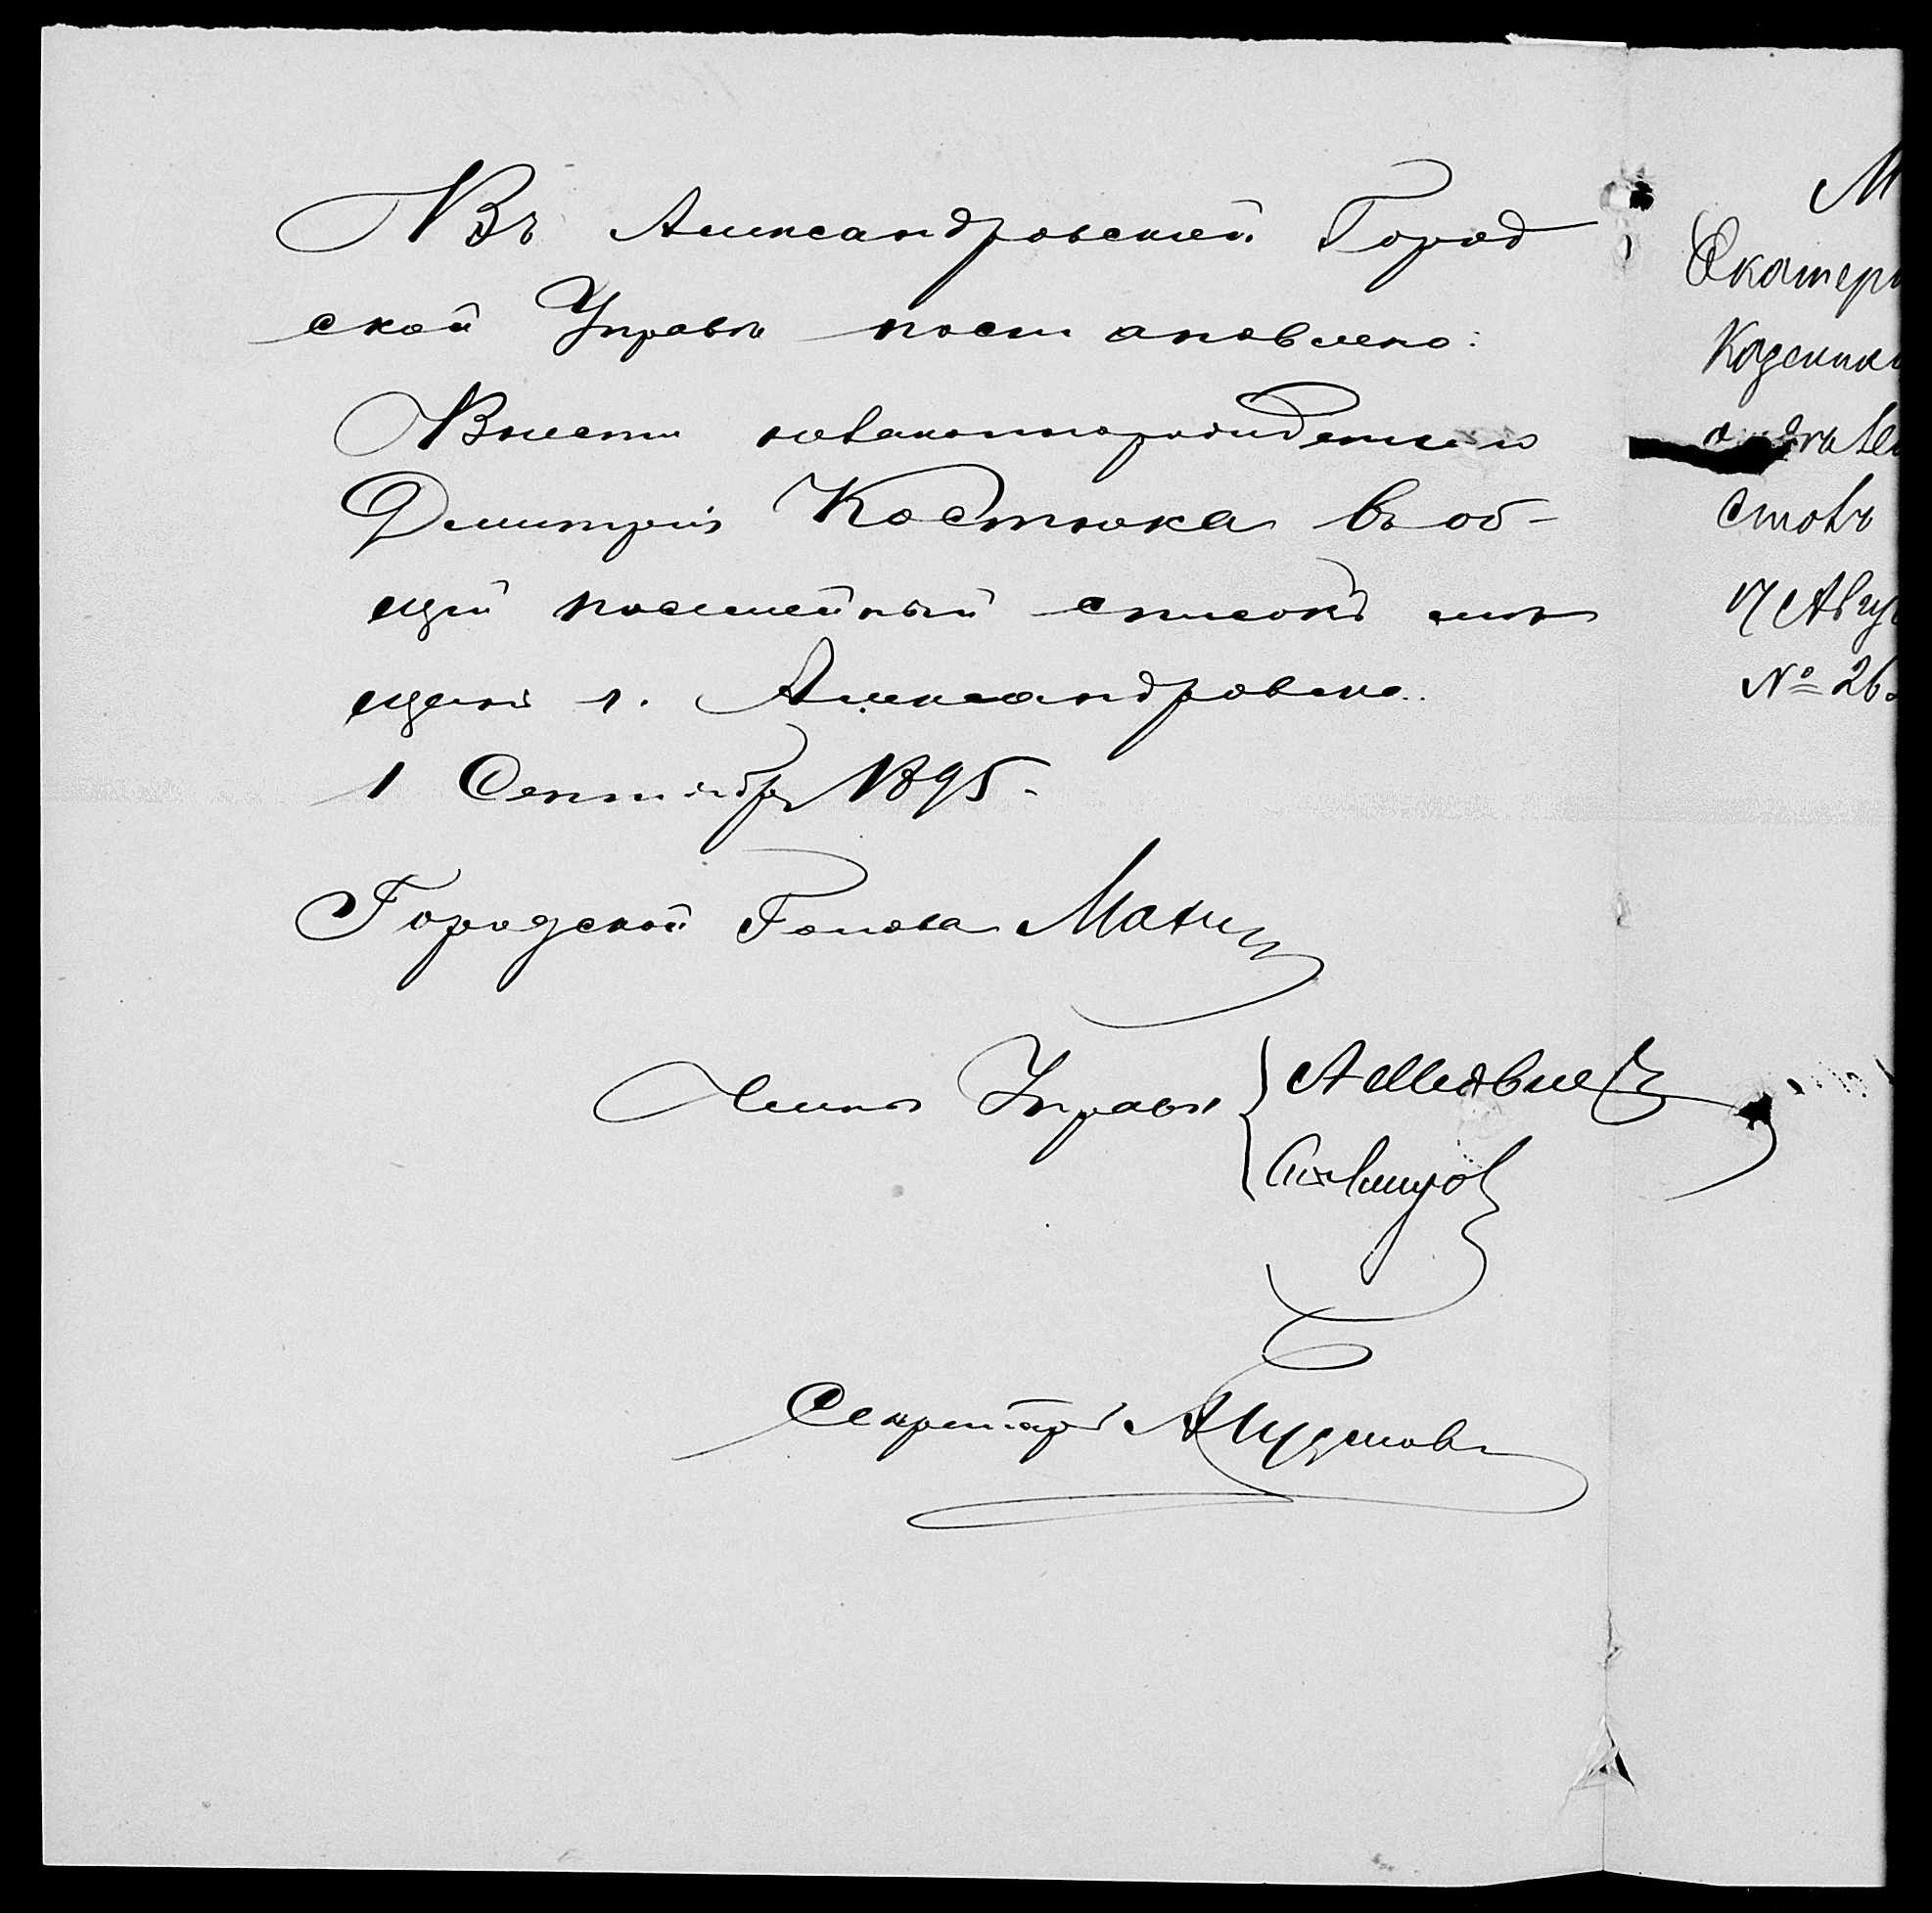 Въ Александровской Город
ской Управѣ постановлено:
Внести незаконнорожденнаго
Дмитрія Костюка въ об-
щій посемейный списокъ мѣ
щанъ г. Александровска.
1 Сентября 1895.
Городской Голова Махин
Члены Управы
Секретарь
М
Екатери
Казенна
стовъ
17 Авгу
№ 26